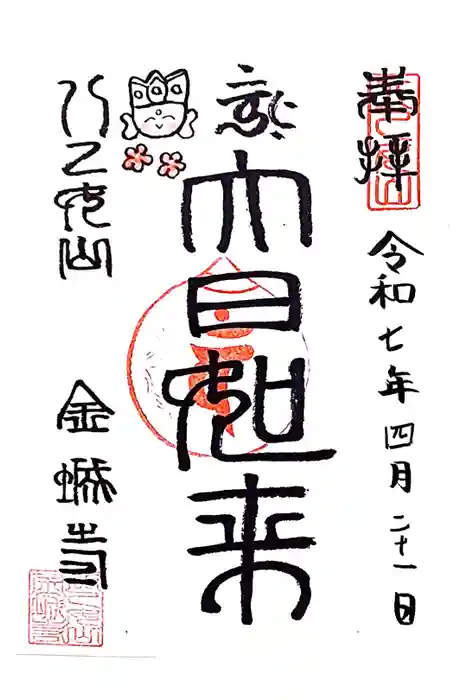 奉拝
令和七年四月二十一日
大日如来
八乙女山 金城寺